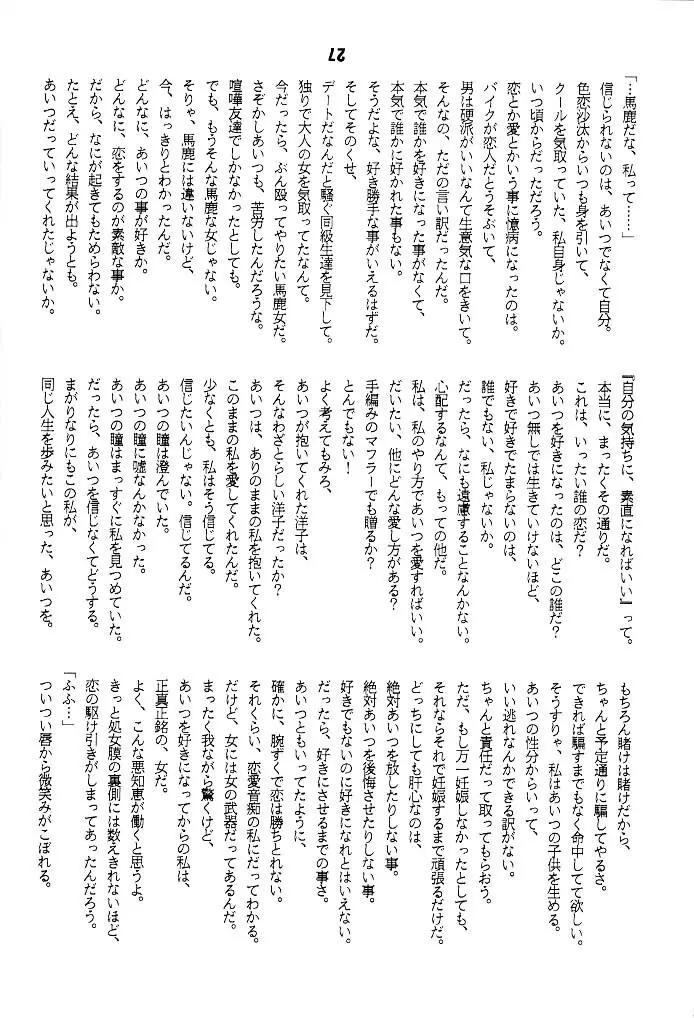 27
「…馬鹿だな、私って……」
信じられないのは、あいつでなくて自分。
色恋沙汰からいつも身を引いて、
クールを気取っていた、私自身じゃないか。
いつ頃からだったろう。
恋とか愛とかいう事に憶病になったのは。
バイクが恋人だとうそぶいて、
男は硬派がいいなんて生意気な口をきいて。
そんなの、ただの言い訳だったんだ。
本気で誰かを好きになった事がなくて、
本気で誰かに好かれた事もない。
そうだよな、好き勝手な事がいえるはずだ。
そしてそのくせ、
デートだなんだと騒ぐ同級生達を見下して。
独りで大人の女を気取ってたなんて。
今だったら、ぶん殴ってやりたい馬鹿女だ。
さぞかしあいつも、苦労したんだろうな。
喧嘩友達でしかなかったとしても。
でも、もうそんな馬鹿な女じゃない。
そりゃ、馬鹿には違いないけど、
今、はっきりとわかったんだ。
どんなに、あいつの事が好きか。
どんなに、恋をするのが素敵な事か。
だから、なにが起きてもためらわない。
たとえ、どんな結果が出ようとも。
あいつだっていってくれたじゃないか。
『自分の気持ちに、素直になればいい』って。
本当に、まったくその通りだ。
これは、いったい誰の恋だ?
あいつを好きになったのは、どこの誰だ?
あいつ無しでは生きていけないほど、
好きで好きでたまらないのは、
誰でもない、私じゃないか。
だったら、なにも遠慮することなんかない。
心配するなんて、もっての他だ。
私は、私のやり方であいつを愛すればいい。
だいたい、他にどんな愛し方がある?
手編みのマフラーでも贈るか?
とんでもない!
よく考えてもみろ、
あいつが抱いてくれた洋子は、
そんなわざとらしい洋子だったか?
あいつは、ありのままの私を抱いてくれた。
このままの私を愛してくれたんだ。
少なくとも、私はそう信じてる。
信じたいんじゃない。信じてるんだ。
あいつの瞳は澄んでいた。
あいつの瞳に嘘なんかなかった。
あいつの瞳はまっすぐに私を見つめていた。
だったら、あいつを信じなくてどうする。
まがりなりにもこの私が、
同じ人生を歩みたいと思った、あいつを。
もちろん賭けは賭けだから、
ちゃんと予定通りに騙してやるさ。
できれば騙すまでもなく命中してて欲しい。
そうすりゃ、私はあいつの子供を生める。
あいつの性分からいって、
いい逃れなんかできる訳がない。
ちゃんと責任だって取ってもらおう。
ただ、もし万一妊娠しなかったとしても、
それならそれで妊娠するまで頑張るだけだ。
どっちにしても肝心なのは、
絶対あいつを放したりしない事。
絶対あいつを後悔させたりしない事。
好きでもないのに好きになれとはいえない。
だったら、好きにさせるまでの事さ。
あいつともいってたように、
確かに、腕ずくで恋は勝ちとれない。
それくらい、恋愛音痴の私にだってわかる。
だけど、女には女の武器だってあるんだ。
まったく我ながら驚くけど、
あいつを好きになってからの私は、
正真正銘の、女だ。
よく、こんな悪知恵が働くと思うよ。
きっと処女膜の裏側には数えきれないほど、
恋の駆け引きがしまってあったんだろう。
「ふふ…」
ついつい唇から微笑みがこぼれる。